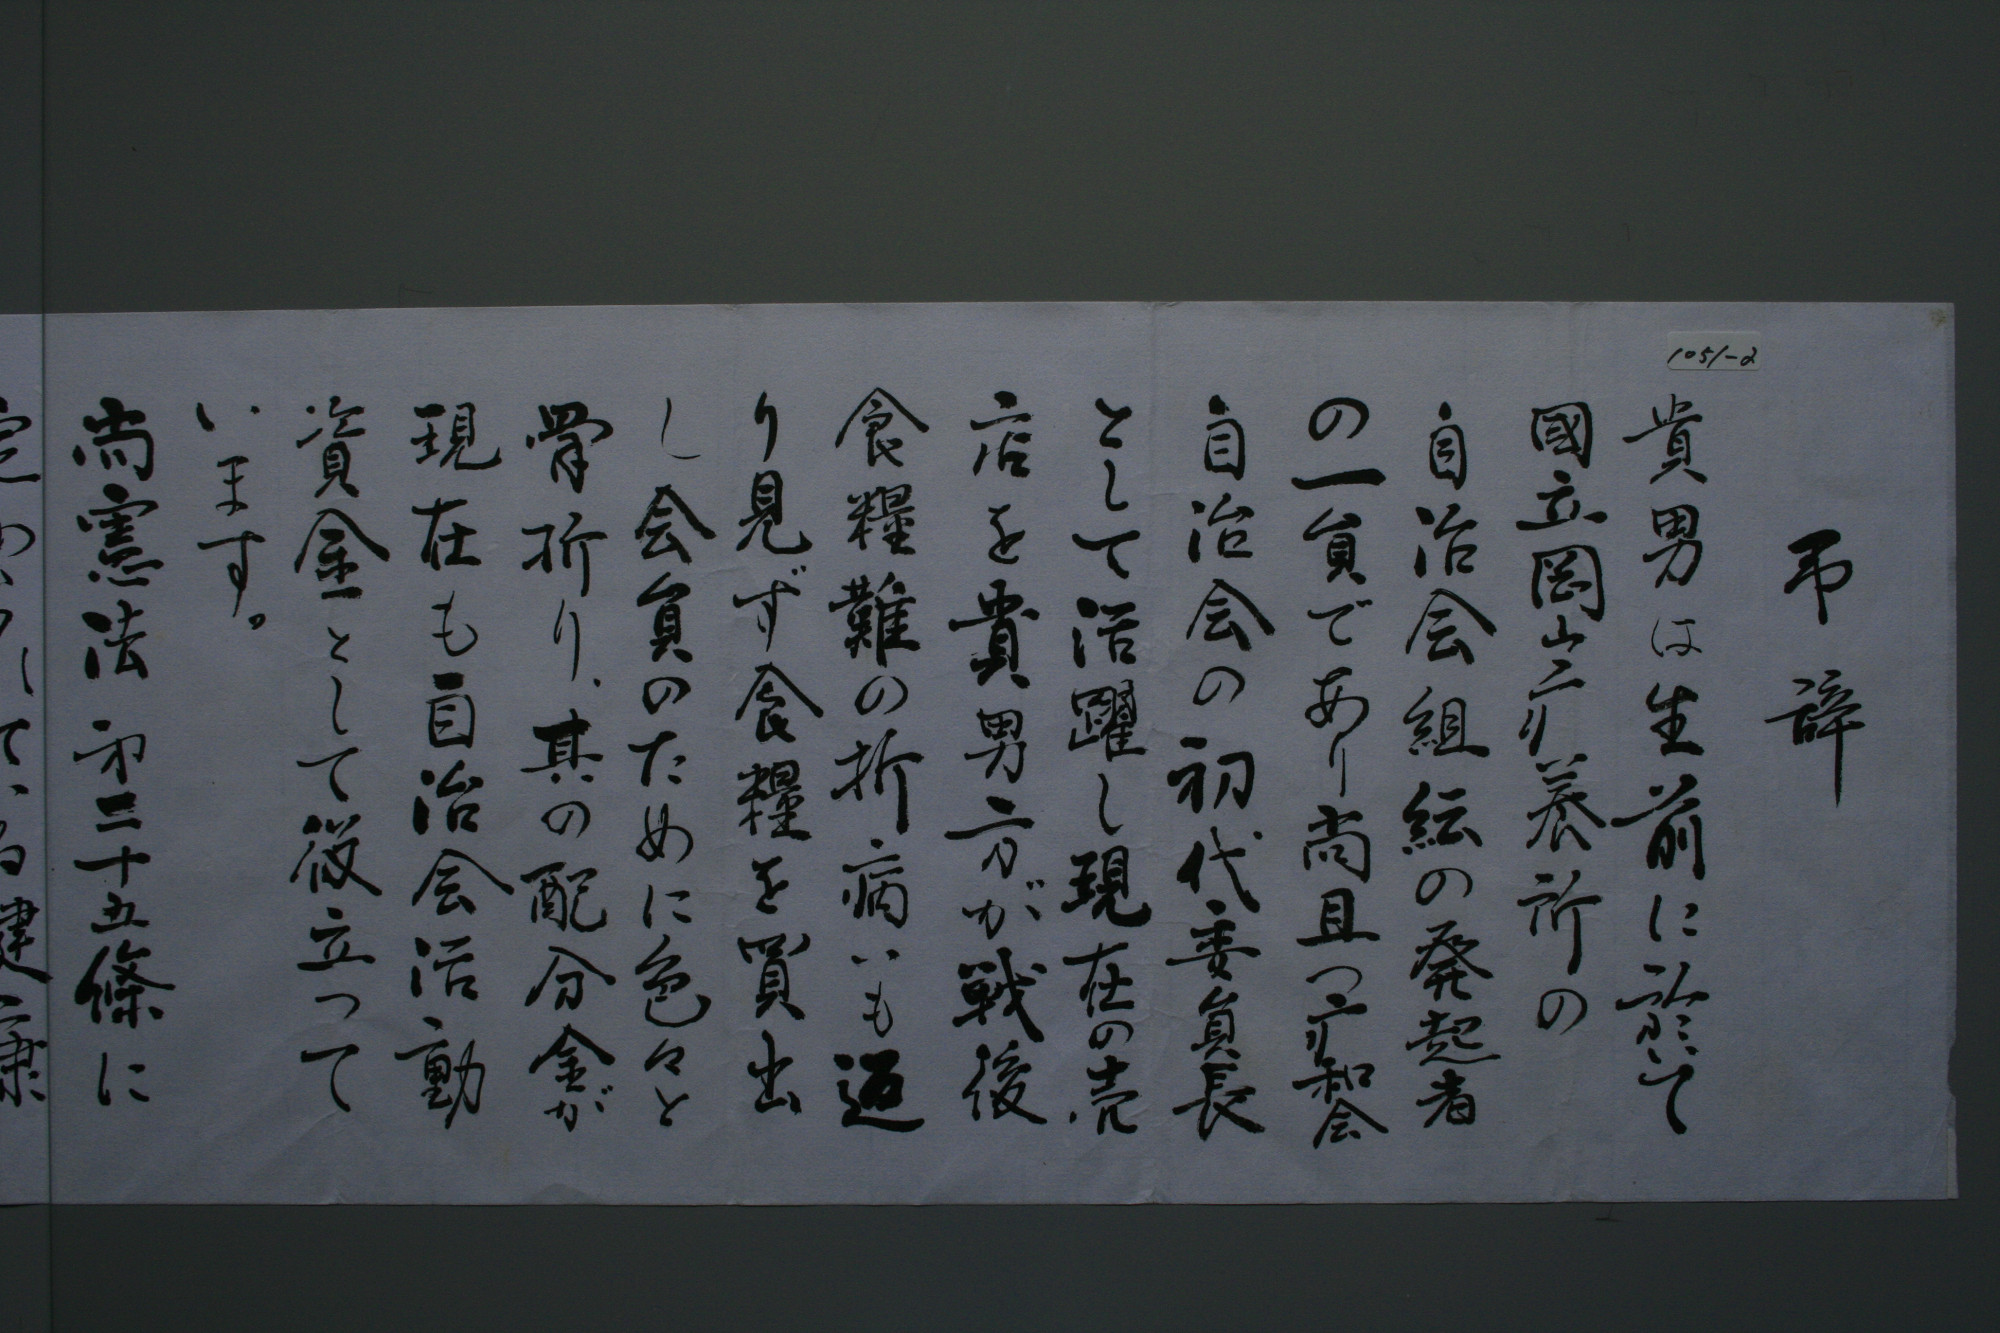 1051-2
弔辞
貴男は生前に於いて
國立岡山疗養所の
自治会組紜の発起者
の一員であり尚且つ疗和会
自治会の初代委員長
として活躍し現在の売
店を貴男方が戦後
食糧難の折病いも
り見ず食糧を買出
し会員のために色々と
骨折り、其の配分金が
現在も自治会活動
資金として役立って
います。
尚憲法才三十五條に
定められている健康